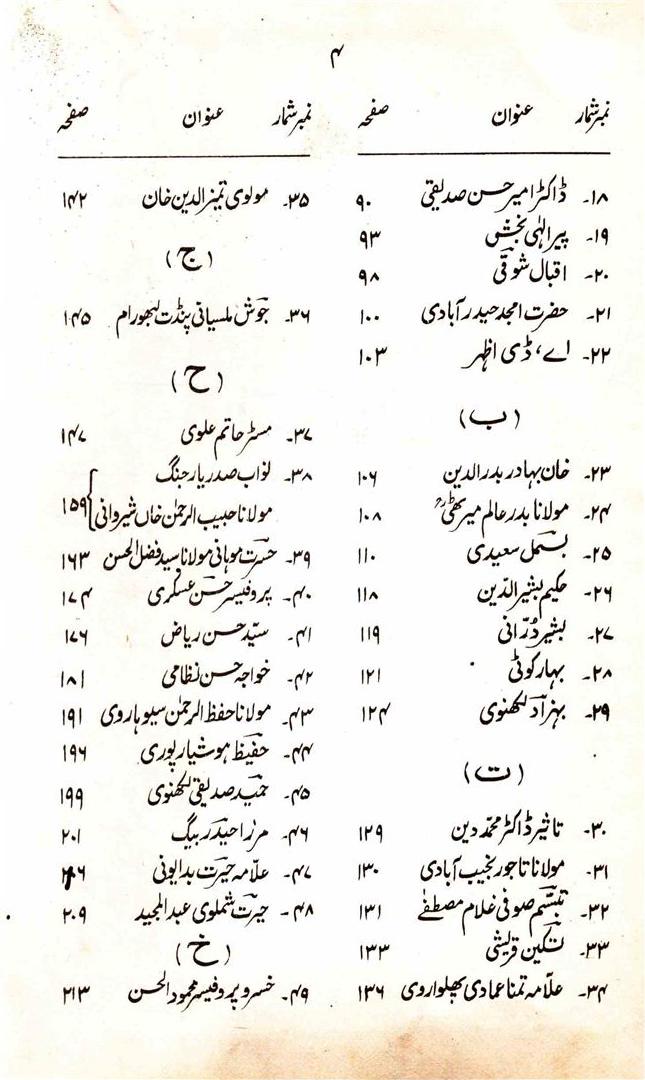 ۴
نمبر شمار عنوان صفحہ
۱۸۔ ڈاکٹر امیر حسن صدیقی ۹۰
۱۹۔ پیر الٰہی بخش ۹۳
۲۰۔ اقبال شوقی ۹۸
۲۱۔ حضرت امجد حیدرآبادی ۱۰۰
۲۲۔ اے، ڈی اظہر ۱۰۳
(ب)
۲۳۔ خان بہادر بدرالدین ۱۰۶
۲۴۔ مولانا بدر عالم میرٹھیؒ ۱۰۸
۲۵۔ بسمل سعیدی ۱۱۰
۲۶۔ حکیم بشیر الدّین ۱۱۸
۲۷۔ بشیر دُرّانی ۱۱۹
۲۸۔ بہار کوٹی ۱۲۱
۲۹۔ بہزاد لکھنوی ۱۲۴
(ت)
۳۰۔ تاثیر ڈاکٹر محمد دین ۱۲۹
۳۱۔ مولانا تاجور نجیب آبادی ۱۳۰
۳۲۔ تبسّم صوفی غلام مصطفےٰ ۱۳۱
۳۳۔ تسکین قریشی ۱۳۳
۳۴۔ علّامہ تمنا عمادی پھلواروی ۱۳۶
نمبر شمار عنوان صفحہ
۳۵۔ مولوی تمیزالدین خان ۱۴۲
(ج)
۳۶۔ جوش ملسیانی پنڈت لبھورام ۱۴۵
(ح)
۳۷۔ مسٹر حاتم علوی ۱۴۷
۳۸۔ نواب صدر یار جنگ
مولانا حبیب الرحمٰن خاں شیروانی ۱۵۹
۳۹۔ حسرت موہانی مولانا سید فضل الحسن ۱۶۳
۴۰۔ پروفیسر حسن عسکری ۱۷۴
۴۱۔ سیّد حسن ریاض ۱۷۶
۴۲۔ خواجہ حسن نظامی ۱۸۱
۴۳۔ مولانا حفظ الرحمٰن سیوہاروی ۱۹۱
۴۴۔ حفیظ ہوشیارپوری ۱۹۶
۴۵۔ حمید صدیقی لکھنوی ۱۹۹
۴۶۔ مرزا حیدر بیگ ۲۰۱
۴۷۔ علّامہ حیرت بدایونی
۴۸۔ حیرت شملوی عبدالمجید ۲۰۹
(خ)
۴۹۔ خسرو پروفیسر محمود الحسن ۲۱۳